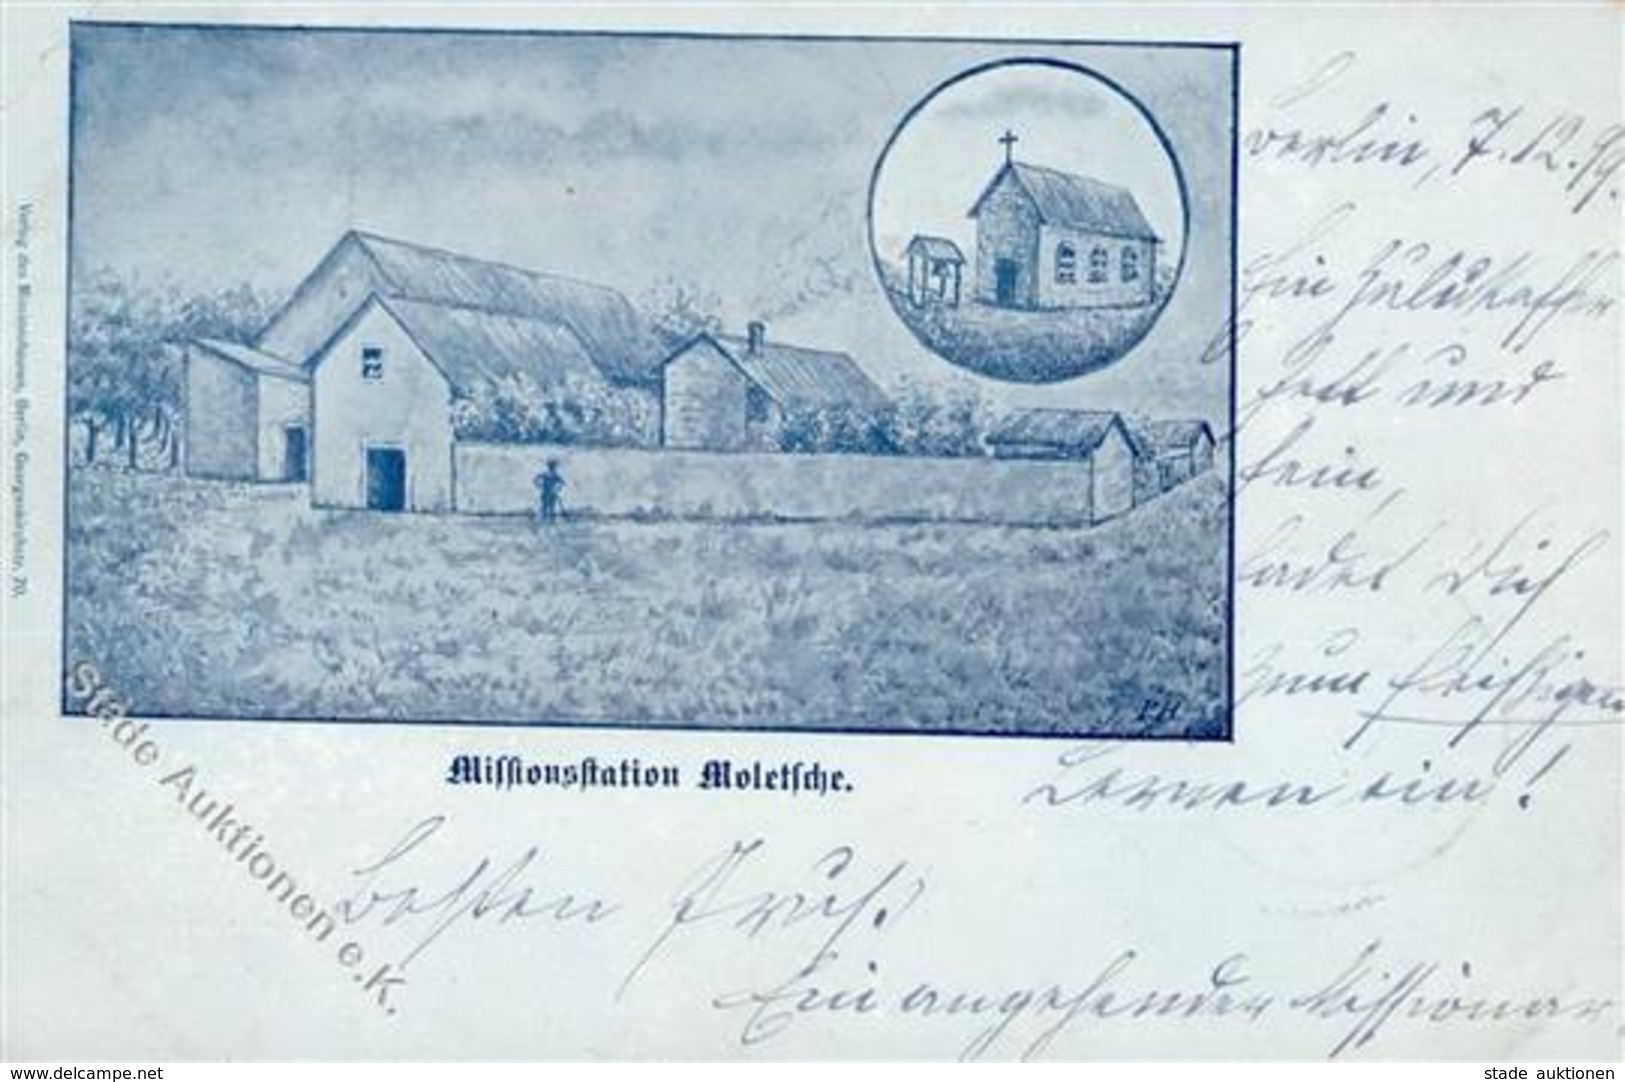 Berlin, 7.12.99.
Ein Zulukaffer
fett und
fein,
ladet Dich
zum fleißigen
Lernen ein!
Missionsstation Moletsche.
Besten Gruß!
Ein angehender Missionar.
Verlag des Missionshauses, Berlin, Georgenkirchstr. 70.
PH
Stade Auktionen e.K.
www.delcampe.net
stade_auktionen